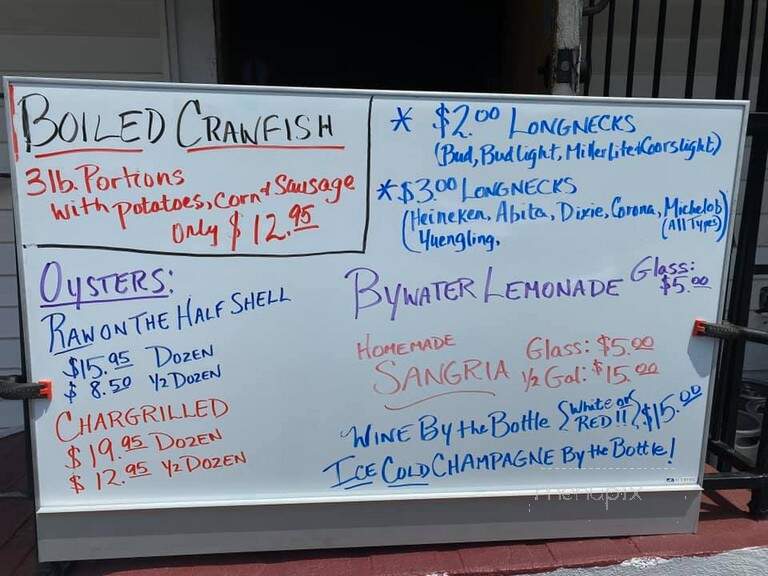 BOILED CRAWFISH
3lb. Portions
with potatoes, corn & Sausage
only $12.95
* $2.00 LONGNECKS
(Bud, Bud Light, Miller Lite & Coors light)
* $3.00 LONGNECKS
(Heineken, Abita, Dixie, Corona, Michelob
Yuengling, (All Types))
OYSTERS:
RAW ON THE HALF SHELL
$15.95 DOZEN
$8.50 1/2 DOZEN
CHARGRILLED
$19.95 DOZEN
$12.95 1/2 DOZEN
BYWATER LEMONADE Glass: $5.00
HOMEMADE
SANGRIA
Glass: $5.00
1/2 Gal: $15.00
WINE By the Bottle {White or RED!!} $15.00
ICE COLD CHAMPAGNE By the Bottle!
menupix